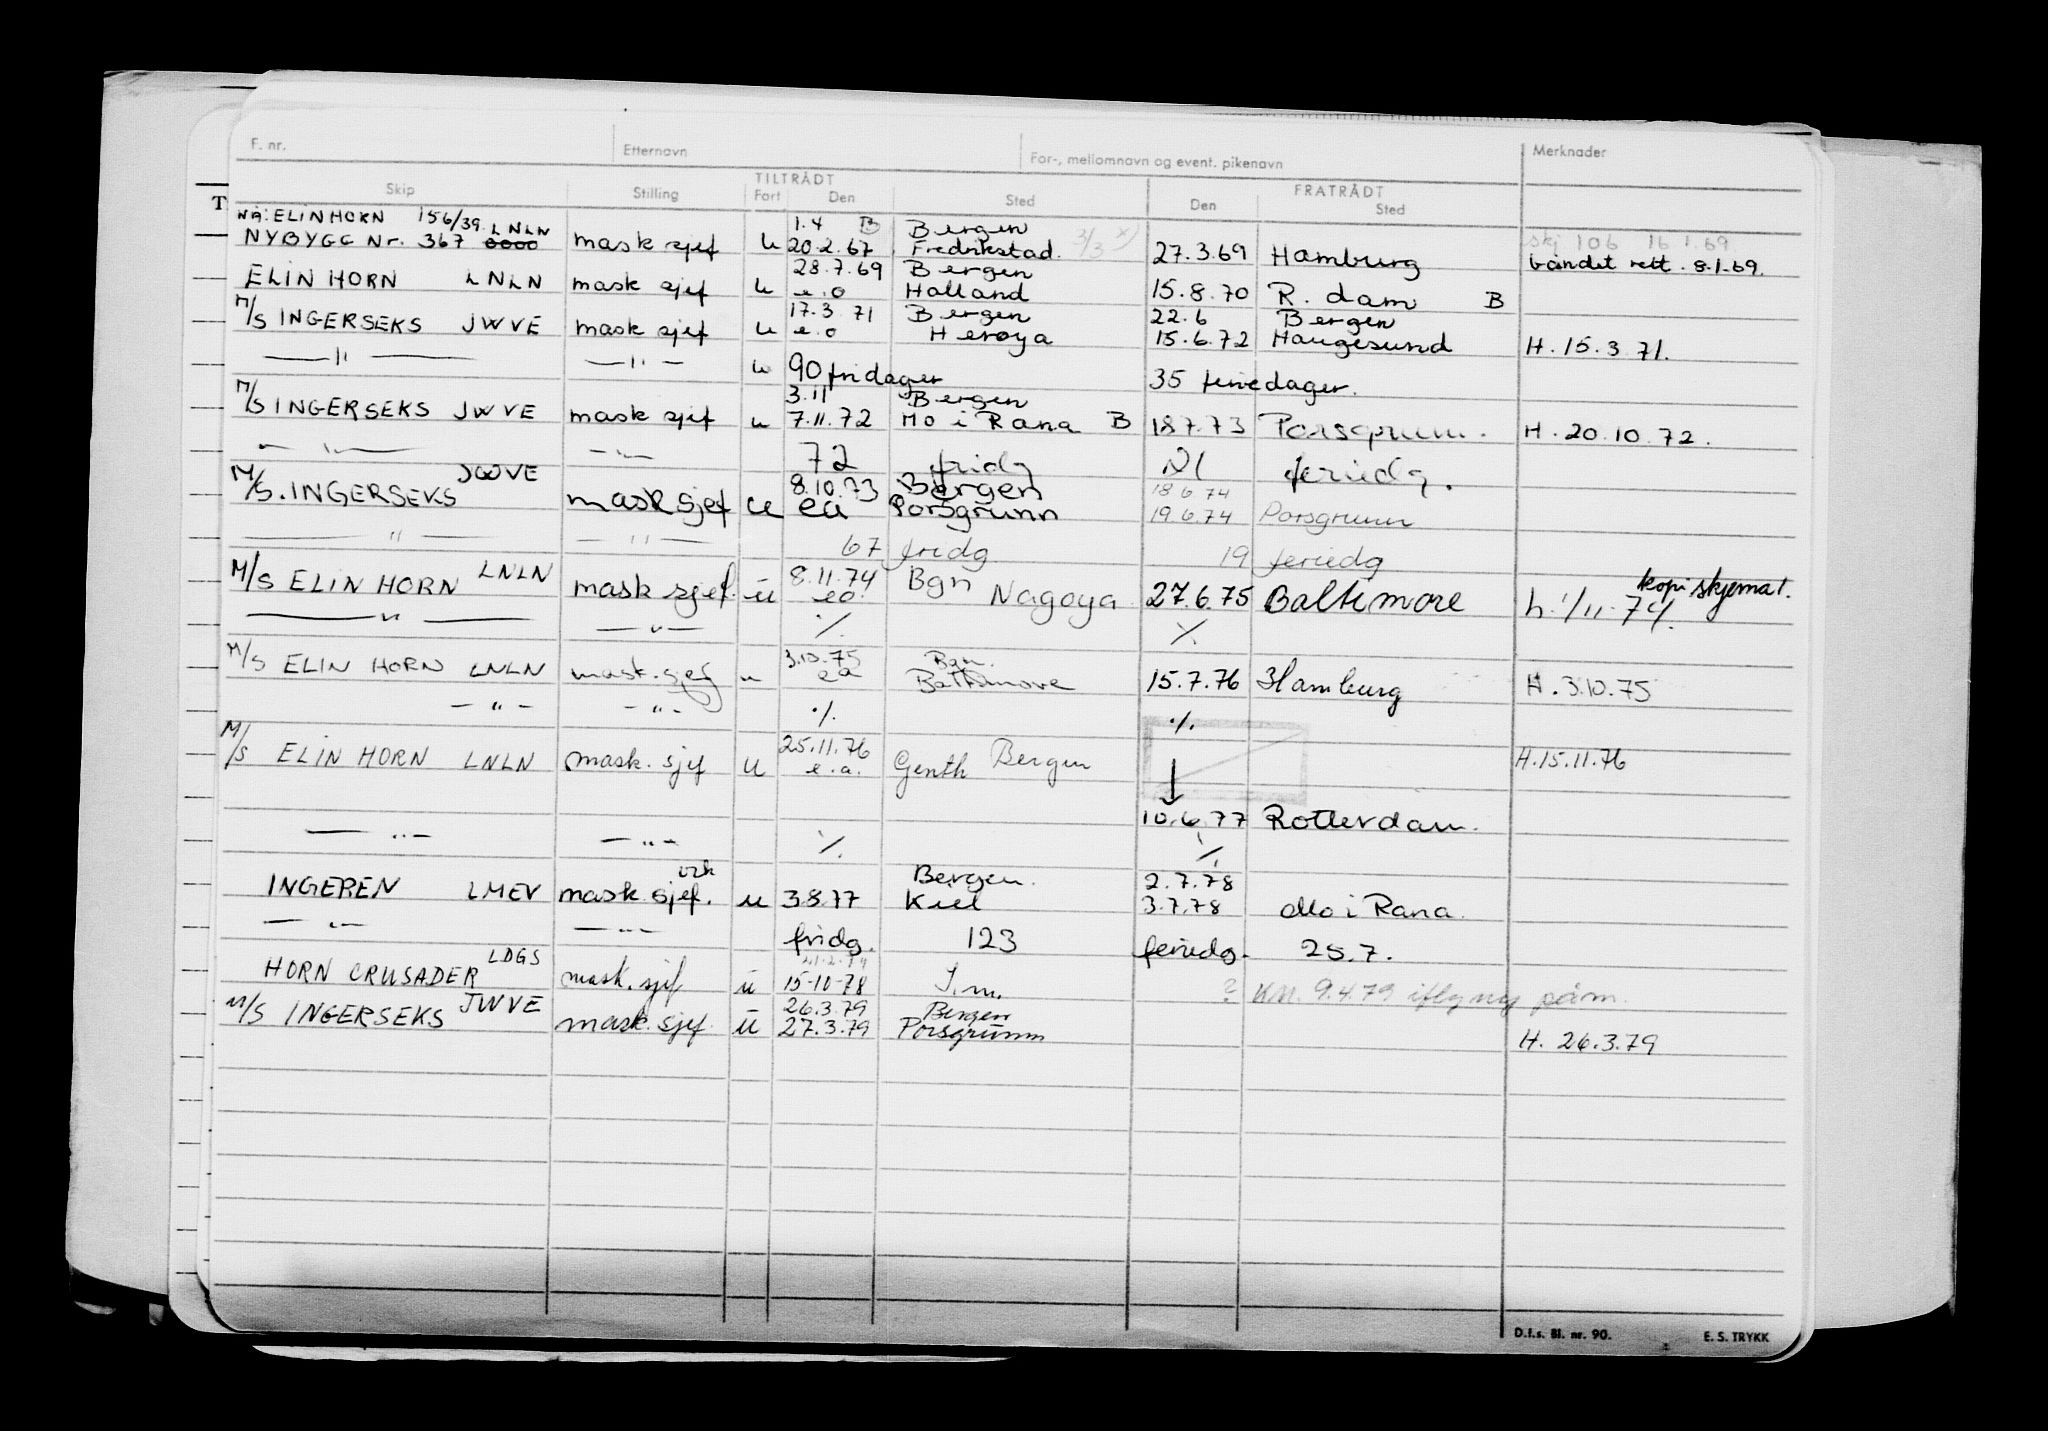 F. nr. Etternavn For-, mellomnavn og event. pikenavn Merknader
TILTRÅDT FRATRÅDT
Skip Stilling Fart Den Sted Den Sted
T
NÅ: ELIN HORN 156/39 LNLN 1.4 B Bergen skj 106 16.1.69
NYBYGG Nr. 367 mask sjef u 20.2.67 Fredrikstad 3/3 x) 27.3.69 Hamburg båndet rett. 8.1.69.
28.7.69 Bergen
ELIN HORN LNLN mask sjef u e.o Holland 15.8.70 R.dam B
17.3.71 Bergen 22.6 Bergen
M/S INGERSEKS JWVE mask sjef u e.o Herøya 15.6.72 Haugesund H. 15.3.71.
— " — — " — u 90 fridager 35 feriedager.
3.11 Bergen
M/S INGERSEKS JWVE mask sjef u 7.11.72 Mo i Rana B 18.7.73 Porsgrunn. H. 20.10.72.
— " — — " — 72 fridg 21 feriedg.
JWVE 8.10.73 Bergen 18.6.74
M/S. INGERSEKS mask sjef u ea Porsgrunn 19.6.74 Porsgrunn
— " — — " — 67 fridg 19 feriedg
LNLN 8.11.74 Bgn kopi skjema1.
M/S ELIN HORN mask sjef. u eo. Nagoya 27.6.75 Baltimore h. 1/11-74.
— " — — " — ./. ./.
3.10.75 Bgn.
M/S ELIN HORN LNLN mask. sjef u ea Baltimore 15.7.76 Hamburg H. 3.10.75
— " — — " — ./. ./.
25.11.76 Bergen
M/S ELIN HORN LNLN mask. sjef u e.a. Genth H.15.11.76
10.6.77 Rotterdam.
— " — — " — ./. ./.
Bergen. 2.7.78
INGEREN LMEV mask. sjef. u 3.8.77 Kiel 3.7.78 Mo i Rana.
— " — — " — fridg. 123 feriedg. 25.7.
LDGS
HORN CRUSADER mask. sjef u 15-10-78 I.m. ? Kn. 9.4.79 iflg ny påm.
JWVE 26.3.79 Bergen
M/S INGERSEKS mask. sjef. u 27.3.79 Porsgrunn H. 26.3.79
D.f.s. Bl. nr. 90. E. S. TRYKK